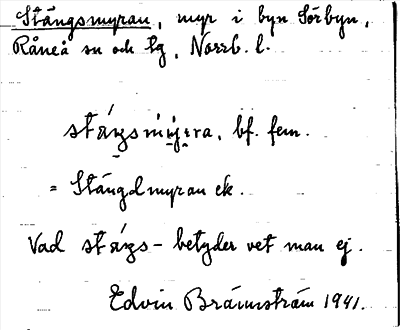 Stångsmyran, myr i byn Sörbyn,
Råneå sn och tg, Norrb. l.
bf. fem.
= Stångsmyran ek.
Vad betyder vet man ej.
Edvin Brännström 1941.